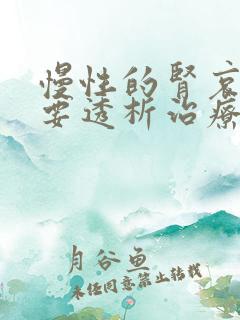 慢性的腎衰
要透析治療
月谷鱼
未经同意禁止转载